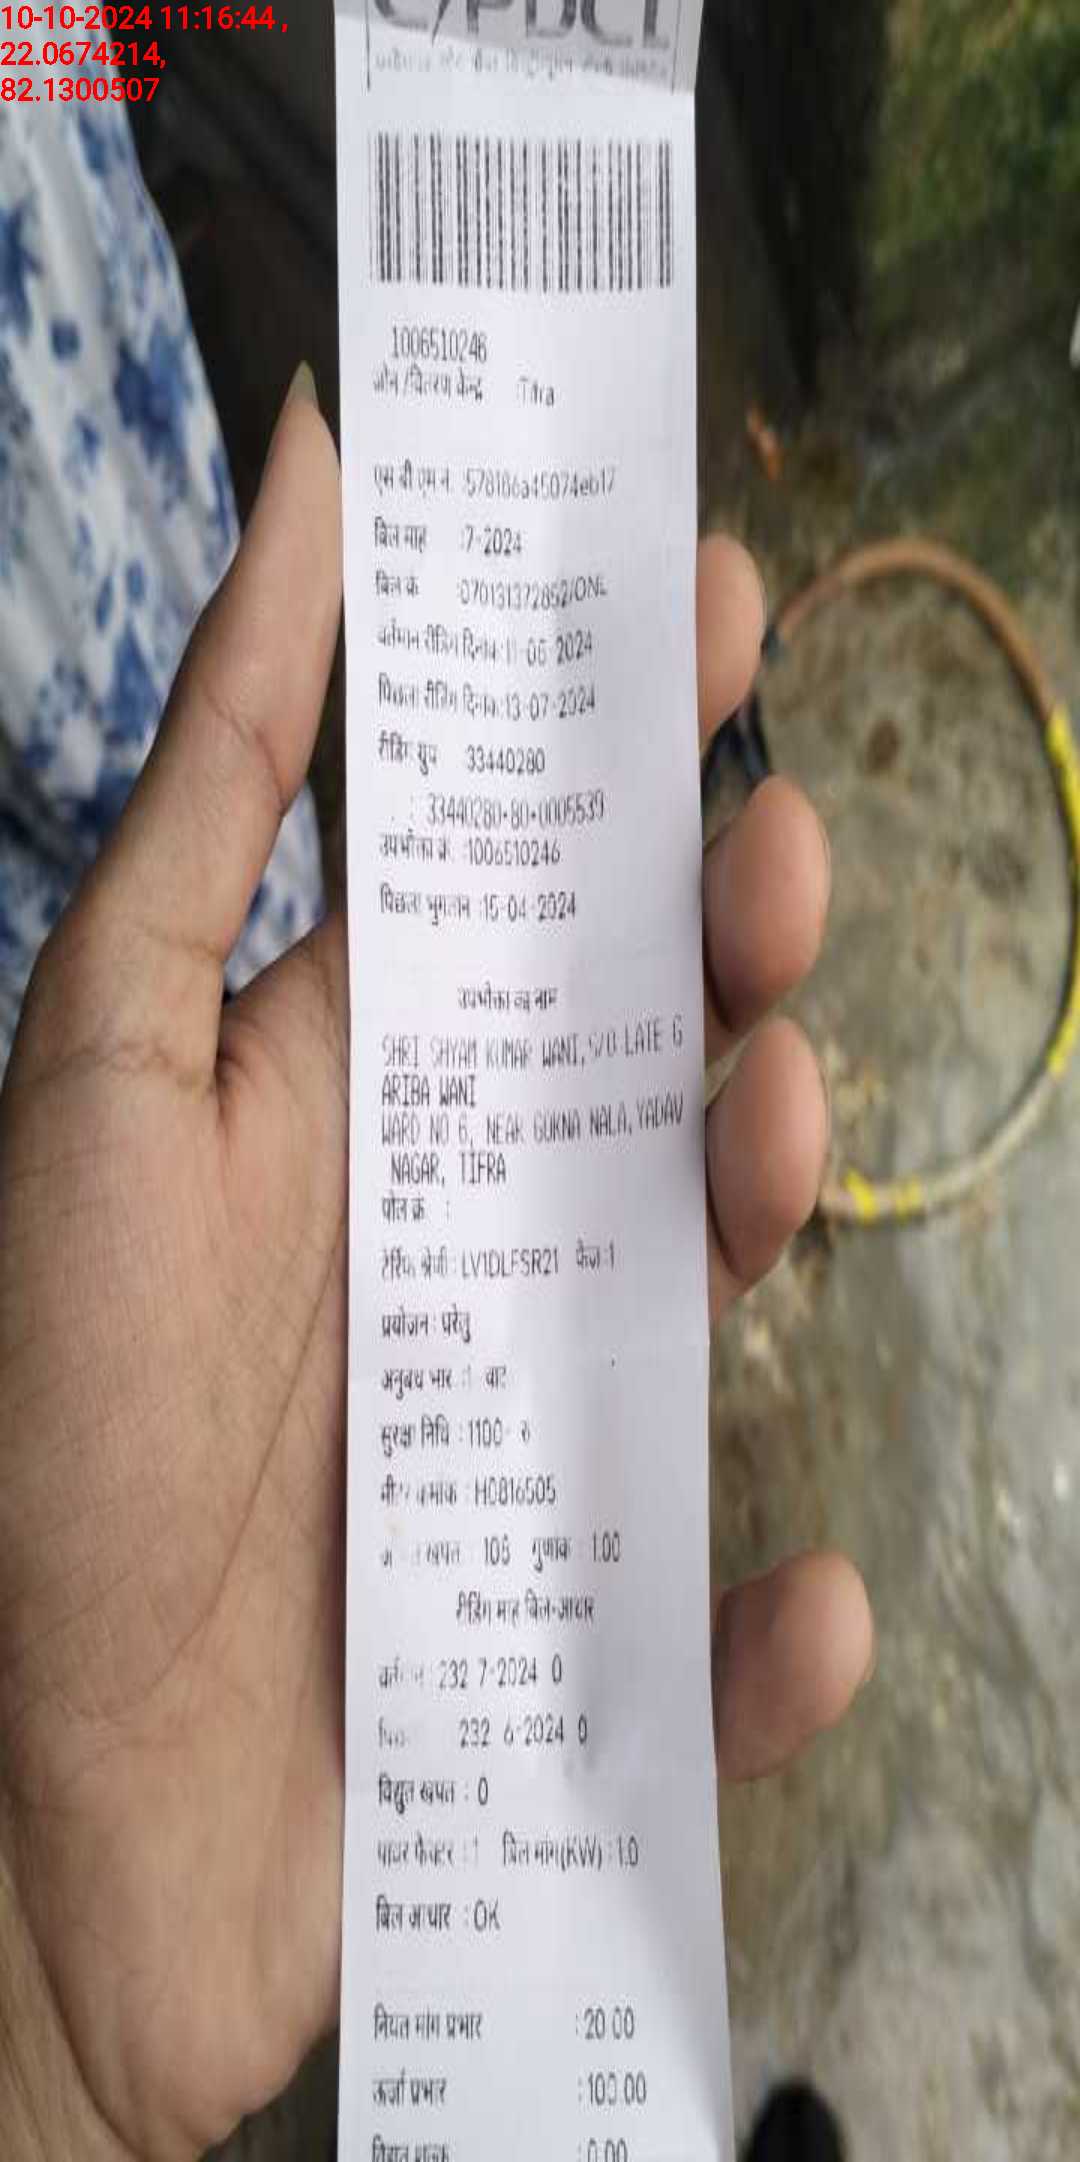 10-10-2024 11:16:44 ,
22.0674214,
82.1300507
C/PDCL
1006510246
जोन/वितरण केन्द्र :Tifra
एस बी एम नं :578186a45074eb17
बिल माह :7-2024
बिल क्रं :070131372852/ONL
वर्तमान रीडिंग दिनांक:11-06-2024
पिछला रीडिंग दिनांक:13-07-2024
रीडिंग ग्रुप 33440280
: 33440280-80-0005539
उपभोक्ता क्रं. :1006510246
पिछला भुगतान :15-04-2024
उपभोक्ता का नाम
SHRI SHYAM KUMAR WANI,S/O LATE G
ARIBA WANI
WARD NO 6, NEAR GOKNA NALA, YADAV
NAGAR, TIFRA
पोल क्रं :
टेरिफ श्रेणी : LV1DLFSR21 फेज :1
प्रयोजन : घरेलु
अनुबंध भार :1 वाट
सुरक्षा निधि : 1100- रु
मीटर क्रमांक : H0816505
खपत 106 गुणांक : 1.00
रीडिंग माह बिल-आधार
232 7-2024 0
232 6-2024 0
विद्युत खपत : 0
पावर फैक्टर : 1 बिल मांग(KW) : 1.0
बिल आधार : OK
नियत मांग प्रभार : 20.00
ऊर्जा प्रभार : 100.00
विद्युत शुल्क : 0.00